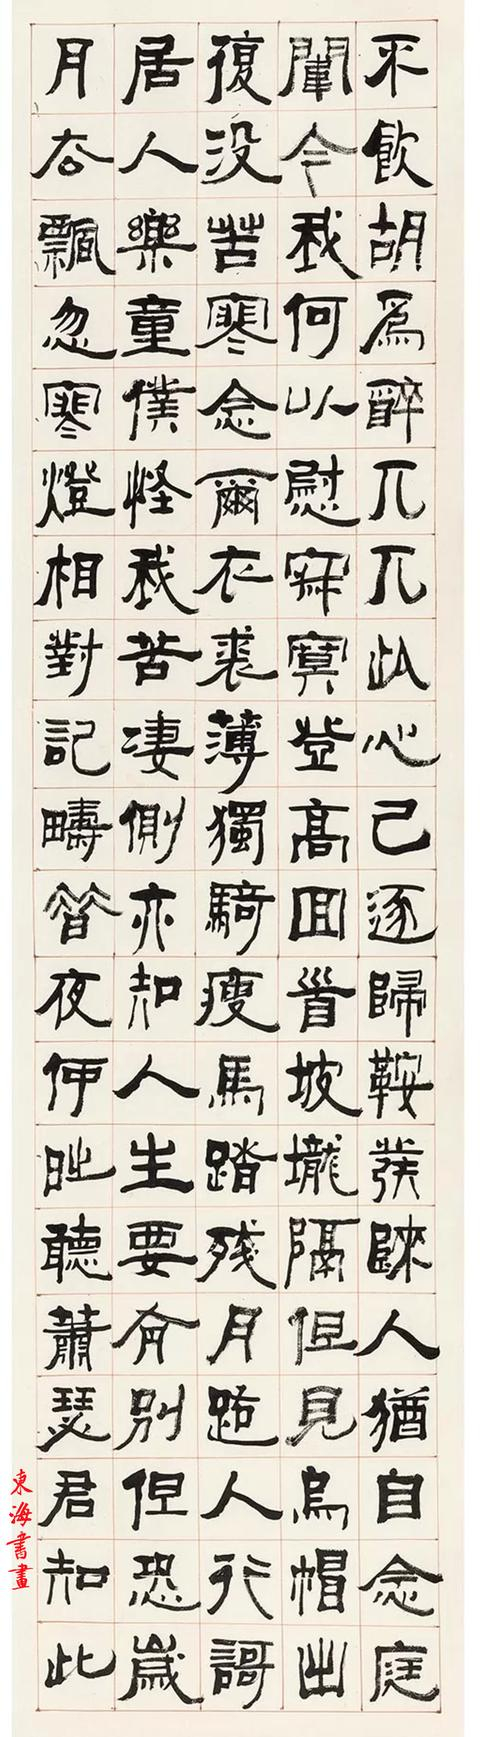 不飲胡爲醉兀兀此心已逐歸鞍發歸人猶自念庭
闈今我何以慰寂寞登高回首坡壠隔但見烏帽出
復没苦寒念爾衣裘薄獨騎瘦馬踏殘月路人行謌
居人樂童僕怪我苦凄側亦知人生要有別但恐歲
月去飄忽寒燈相對記疇昔夜何時聽蕭瑟君知此
東海書畫